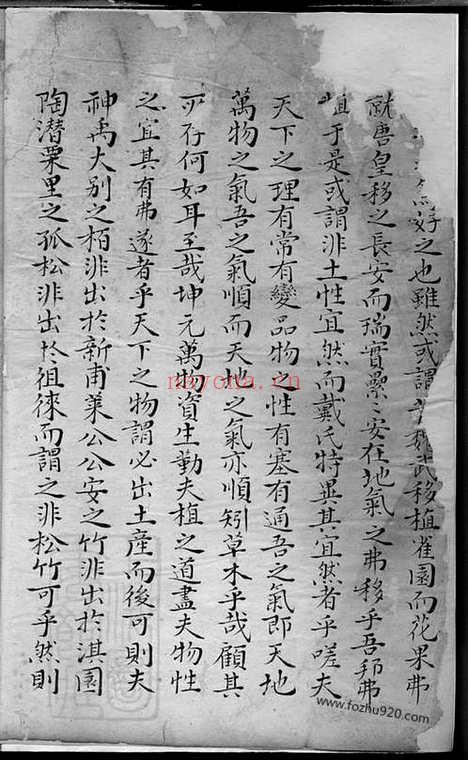 好之也雖然或謂武移植雀園而花果弗
就唐皇移之長安而瑞實纍〻安在地氣之弗移乎吾邦弗
植于是或謂非土性宜然而戴氏特異其宜然者乎嗟夫
天下之理有常有變品物之性有塞有通吾之氣即天地
萬物之氣吾之氣順而天地之氣亦順矧草木乎哉顧其
所存何如耳至哉坤元萬物資生勤夫植之道盡夫物性
之宜其有弗遂者乎天下之物謂必出土產而後可則夫
神禹大别之栢非出於新甫萊公公安之竹非出於淇園
陶潛栗里之孤松非出於徂徠而謂之非松竹可乎然則
nayona.cn
www.fozhu920.com